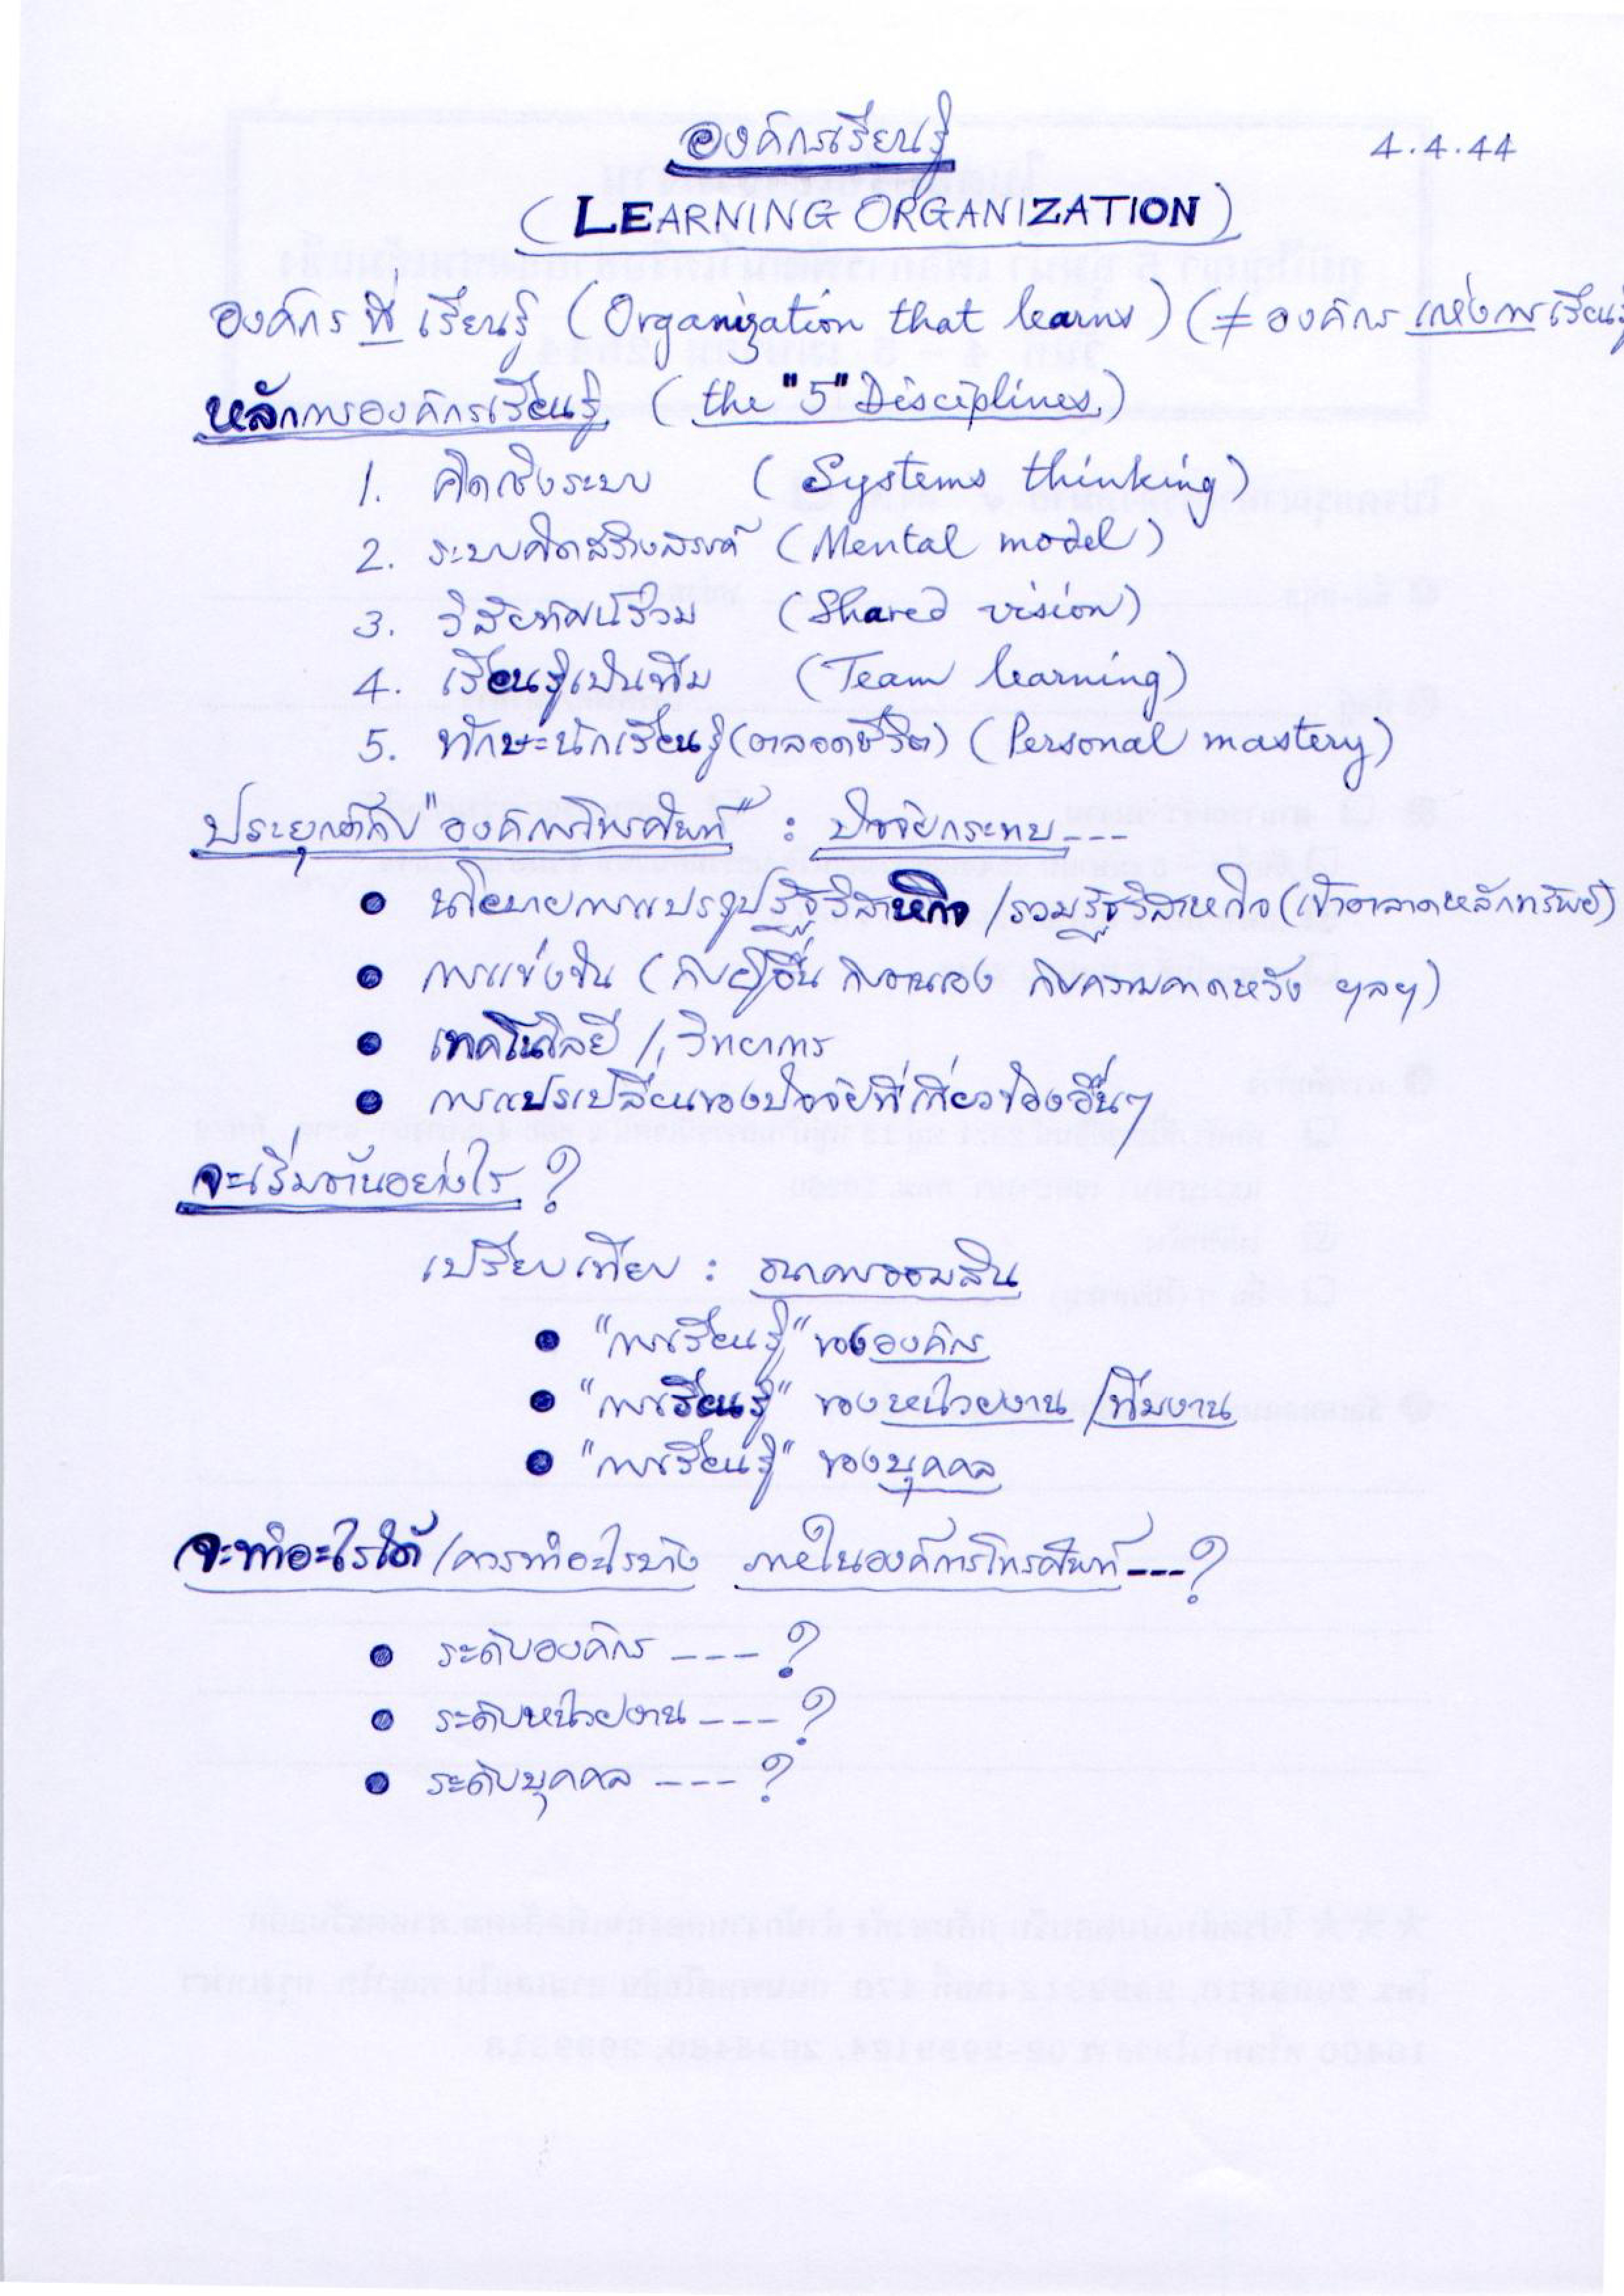 องค์กรเรียนรู้
4.4.44
(LEARNING ORGANIZATION)
องค์กร ที่ เรียนรู้ (Organization that learns) (≠ องค์กร แห่งการเรียนรู้
หลักการองค์กรเรียนรู้ (the "5" Disciplines)
1. คิดเชิงระบบ (Systems thinking)
2. ระบบคิดสร้างสรรค์ (Mental model)
3. วิสัยทัศน์ร่วม (Shared vision)
4. เรียนรู้เป็นทีม (Team learning)
5. ทักษะนักเรียนรู้ (ตลอดชีวิต) (Personal mastery)
ประยุกต์กับ "องค์การโทรศัพท์" : ปัจจัยกระทบ ---
● นโยบายการแปรรูปรัฐวิสาหกิจ / รวมรัฐวิสาหกิจ (เข้าตลาดหลักทรัพย์)
● การแข่งขัน (กับผู้อื่น กับตนเอง กับความคาดหวัง ฯลฯ)
● เทคโนโลยี / วิทยาการ
● การแปรเปลี่ยนของปัจจัยที่เกี่ยวข้องอื่นๆ
จะเริ่มต้นอย่างไร ?
เปรียบเทียบ : ธนาคารออมสิน
● "การเรียนรู้" ขององค์กร
● "การเรียนรู้" ของหน่วยงาน / ทีมงาน
● "การเรียนรู้" ของบุคคล
จะทำอะไรได้ / ควรทำอะไรบ้าง ภายในองค์การโทรศัพท์ --- ?
● ระดับองค์กร ---- ?
● ระดับหน่วยงาน --- ?
● ระดับบุคคล --- ?